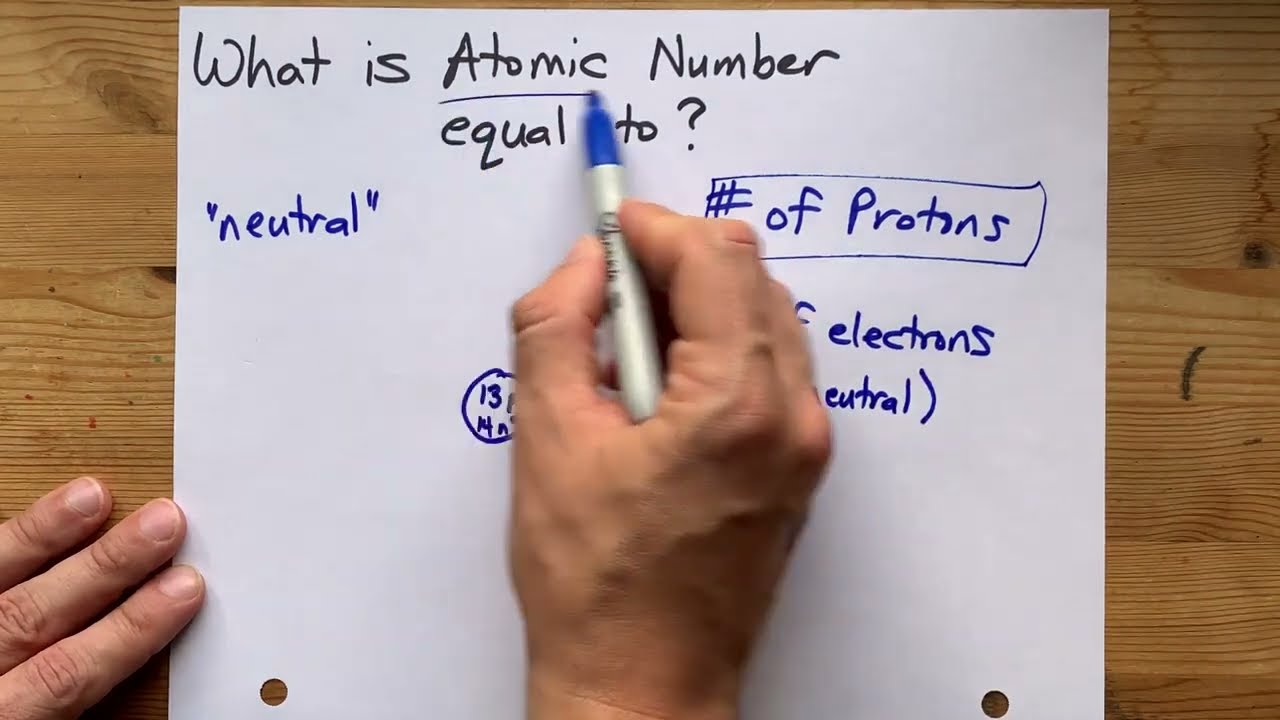 What is Atomic Number
equal to ?
"neutral"
# of Protons
electrons
eutral)
13
14 n